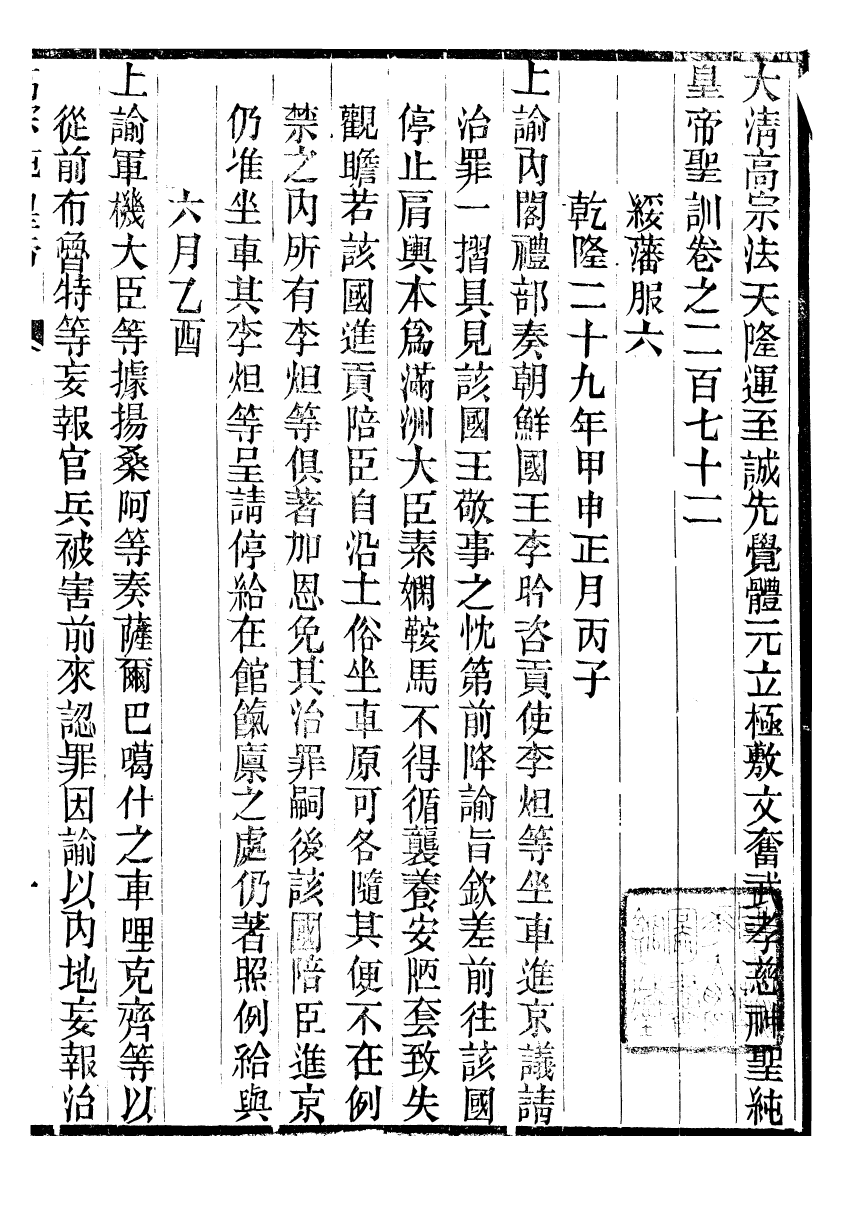 大清高宗法天隆運至誠先覺體元立極敷文奮武孝慈神聖純
皇帝聖訓卷之二百七十二
綏藩服六
乾隆二十九年甲申正月丙子
上諭內閣禮部奏朝鮮國王李昑咨貢使李炟等坐車進京議請
治罪一摺具見該國王敬事之忱第前降諭旨欽差前往該國
停止肩輿本爲滿洲大臣素嫻鞍馬不得循襲養安陋套致失
觀瞻若該國進貢陪臣自沿土俗坐車原可各隨其便不在例
禁之內所有李炟等俱著加恩免其治罪嗣後該國陪臣進京
仍准坐車其李炟等呈請停給在館餼廩之處仍著照例給與
六月乙酉
上諭軍機大臣等據揚桑阿等奏薩爾巴噶什之車哩克齊等以
從前布魯特等妄報官兵被害前來認罪因諭以內地妄報治
一